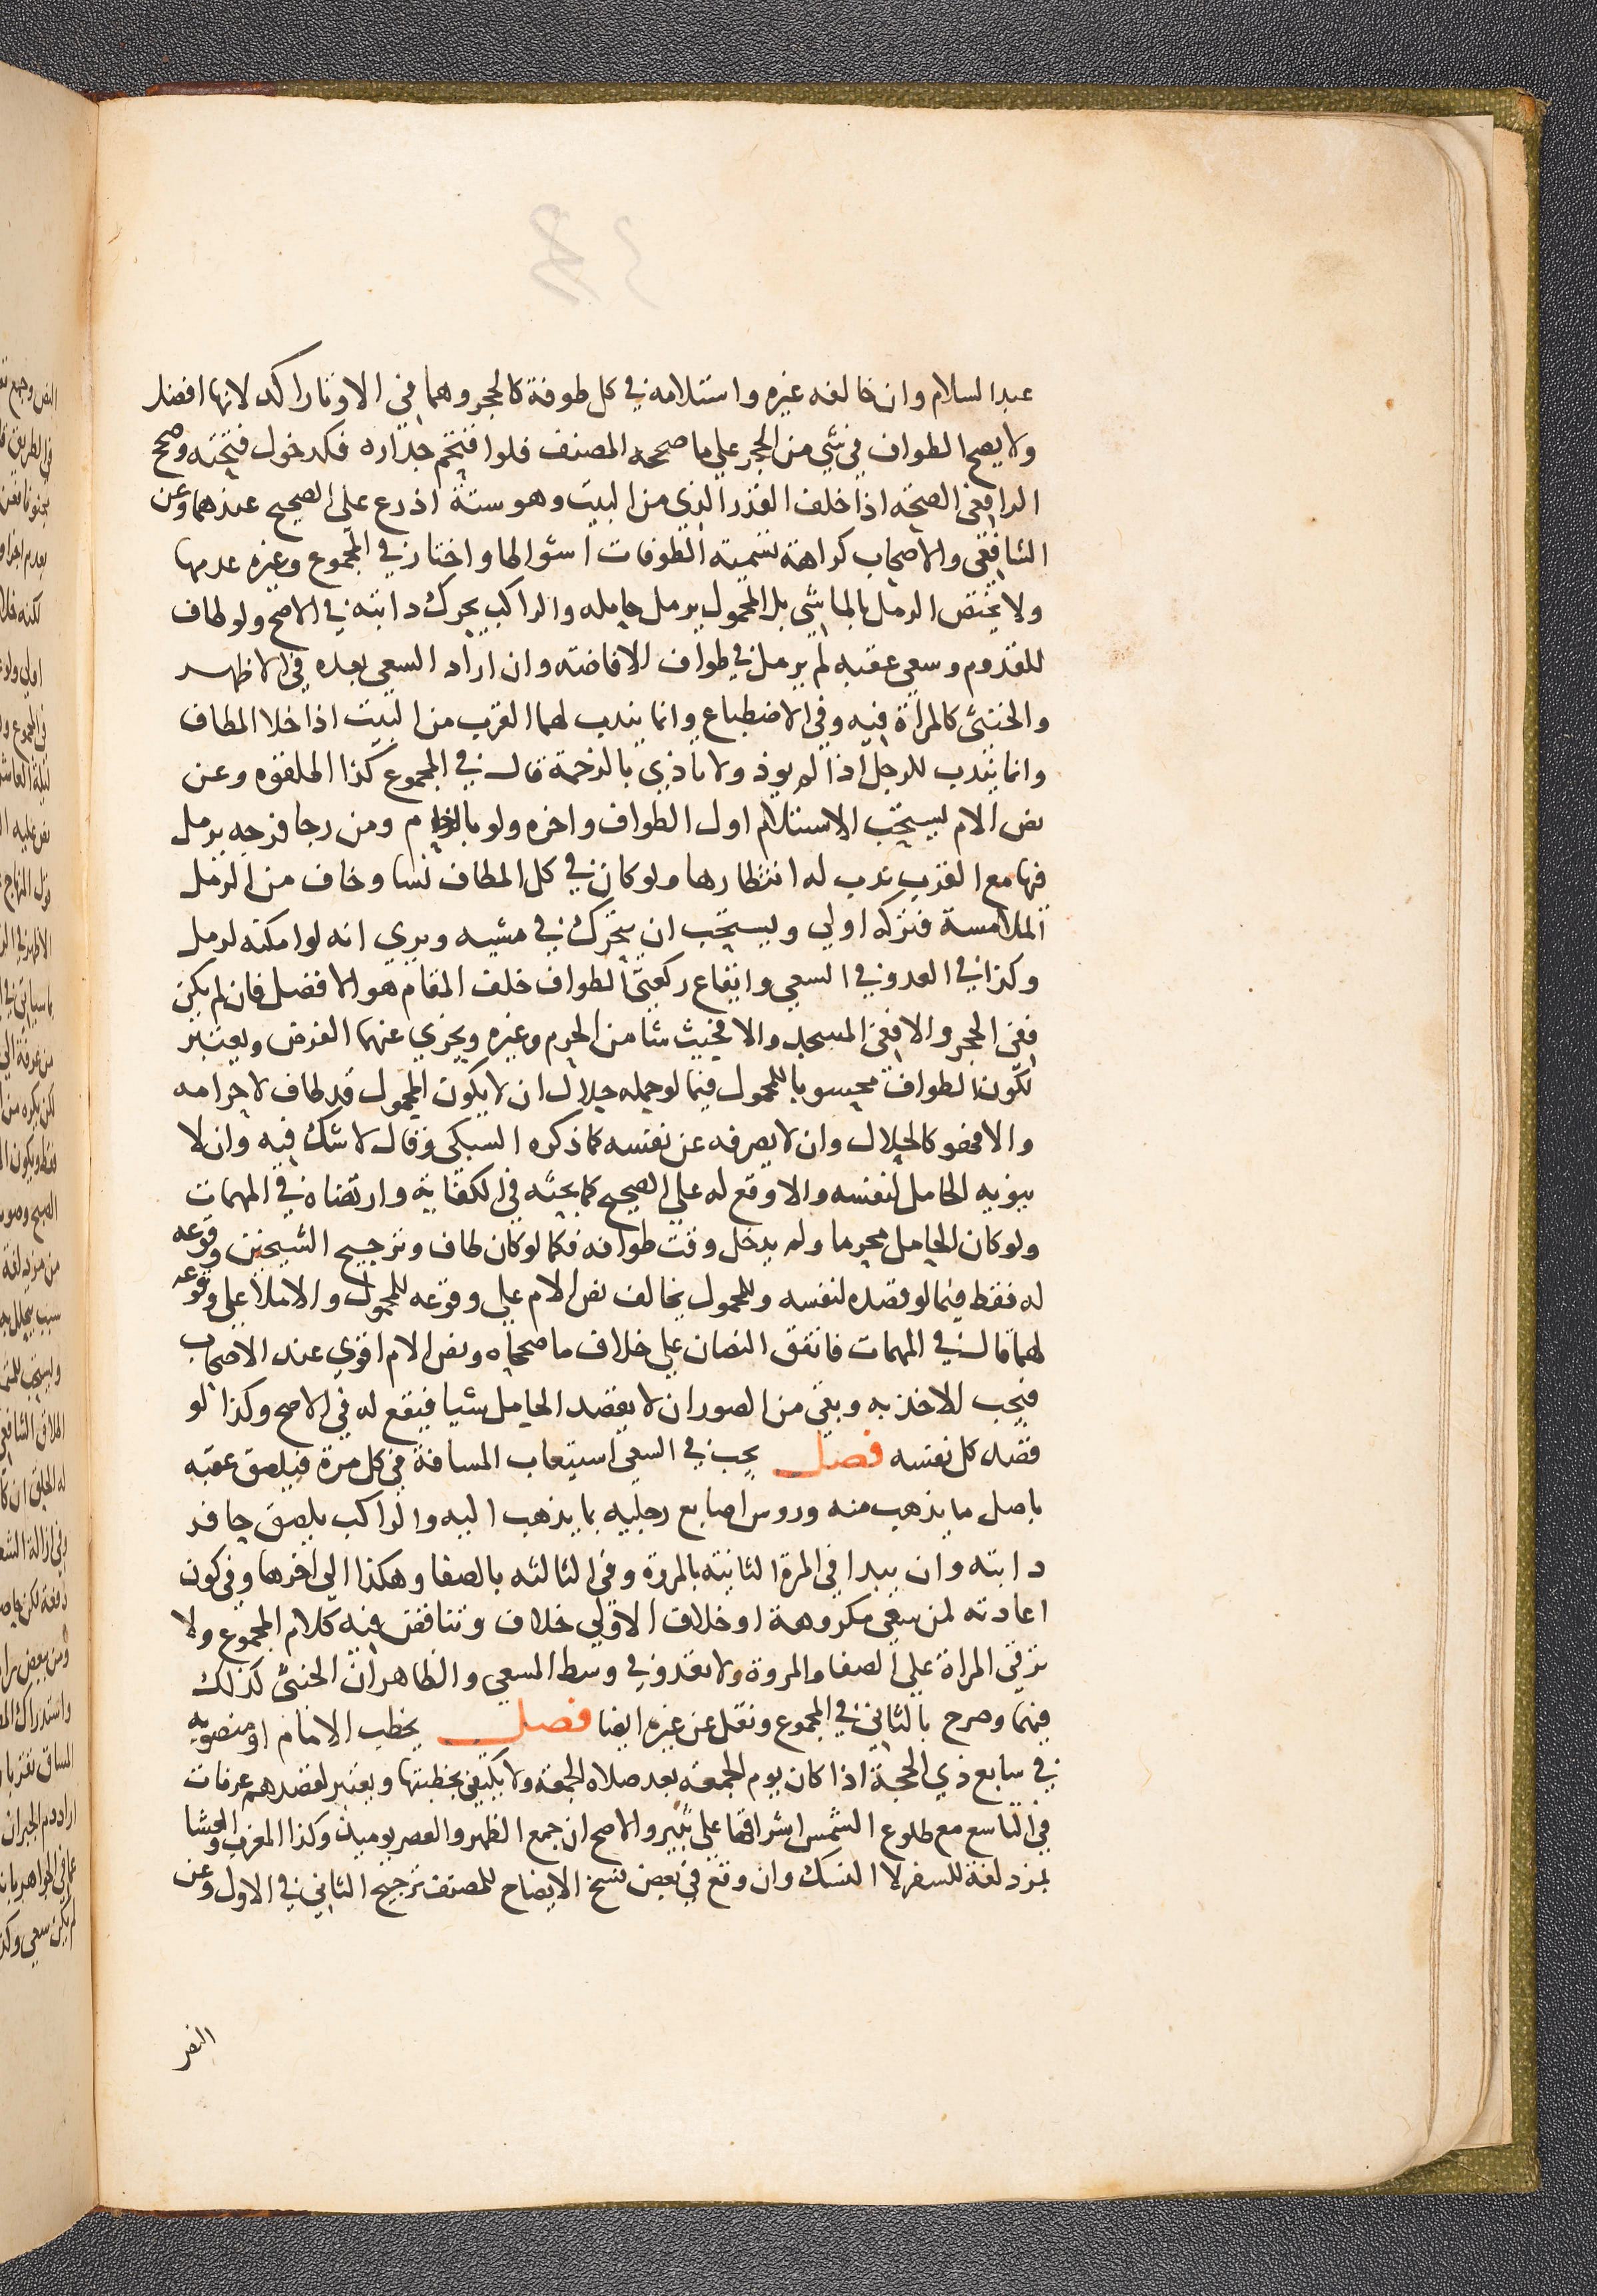 عبد السلام وان خالفه غيره واستلامه في كل طوفة كالحجر وهما في الاوتار اكد لانها افضل
ولا يصح الطواف في شي من الحجر علي ما صححه المصنف فلو اقتحم جداره فكدخول فتحته وصحح
الرافعي الصحة اذا خلف القدر الذي من البيت وهو ستة اذرع علي الصحيح عندهما وعن
الشافعي والاصحاب كراهة تسمية الطوفات اشواطا واختار في المجموع وغيره عدمها
ولا يختص الرمل بالماشي بل المحمول يرمل حامله والراكب يحرك دابته في الاصح ولو طاف
للقدوم وسعي عقبه لم يرمل في طواف الافاضة وان اراد السعي بعده في الاظهر
والخنثي كالمراة فيه وفي الاضطباع وانما يندب لهما القرب من البيت اذا خلا المطاف
وانما يندب للرجل اذا لم يوذ ولا تاذي بالزحمة قال في المجموع كذا اطلقوه وعن
نص الام يستحب الاستلام اول الطواف واخره ولو بالزحام ومن رجا فرجه يرمل
فيها مع القرب ندب له انتظارها ولو كان في كل المطاف نسا وخاف من الرمل
الملامسة فتركه اولي ويستحب ان يتحرك في مشيه ويري انه لو امكنه لرمل
وكذا في العدو في السعي وايقاع ركعتي الطواف خلف المقام هو الافضل فان لم يكن
ففي الحجر والا ففي المسجد والا فحيث شا من الحرم وغيره ويجزي عنهما الفرض ويعتبر
لكون الطواف محسوبا للمحمول فيما لو حمله حلال ان لا يكون المحمول قد طاف لاحرامه
والا فهو كالحلال وان لا يصرفه عن نفسه كما ذكره السبكي وقال لا شك فيه وان لا
ينويه الحامل لنفسه والا وقع له علي الصحيح كما بحثه في الكفاية وارتضاه في المهمات
ولو كان الحامل محرما ولم يدخل وقت طوافه فكما لو كان طاف وترجيح الشيخين وقوعه
له فقط فيما لو قصده لنفسه وللمحمول يخالف نص الام علي وقوعه للمحمول والاملا علي وقوعه
لهما قال في المهمات فاتفق النصان علي خلاف ما صححاه ونص الام اقوي عند الاصحاب
فيجب الاخذ به وبقي من الصور ان لا يقصد الحامل شيا فيقع له في الاصح وكذا لو
قصد كل نفسه فصل يجب في السعي استيعاب المسافة في كل مرة فيلصق عقبه
باصل ما يذهب منه وروس اصابع رجليه بما يذهب اليه والراكب يلصق حافر
دابته وان يبدا في المرة الثانية بالمروة وفي الثالثه بالصفا وهكذا الي اخرها وفي كون
اعادته لمن سعي مكروهة او خلاف الاولي خلاف وتناقض فيه كلام المجموع ولا
ترقي المراة علي الصفا والمروة ولا تعدو في وسط المسعي والظاهر ان الخنثي كذلك
فيهما وصرح بالثاني في المجموع ونقل عن غيره ايضا فصل يخطب الامام او منصوبه
في سابع ذي الحجة اذا كان يوم الجمعة بعد صلاة الجمعة ولا يكتفي بخطبتها ويعتبر لقصدهم عرفات
في التاسع مع طلوع الشمس اشراقها علي ثبير والاصح ان جمع الظهر والعصر يوميذ وكذا المغرب والعشا
بمزدلفة للسفر لا النسك وان وقع في بعض نسخ الايضاح للمصنف ترجيح الثاني في الاول وعن
النص